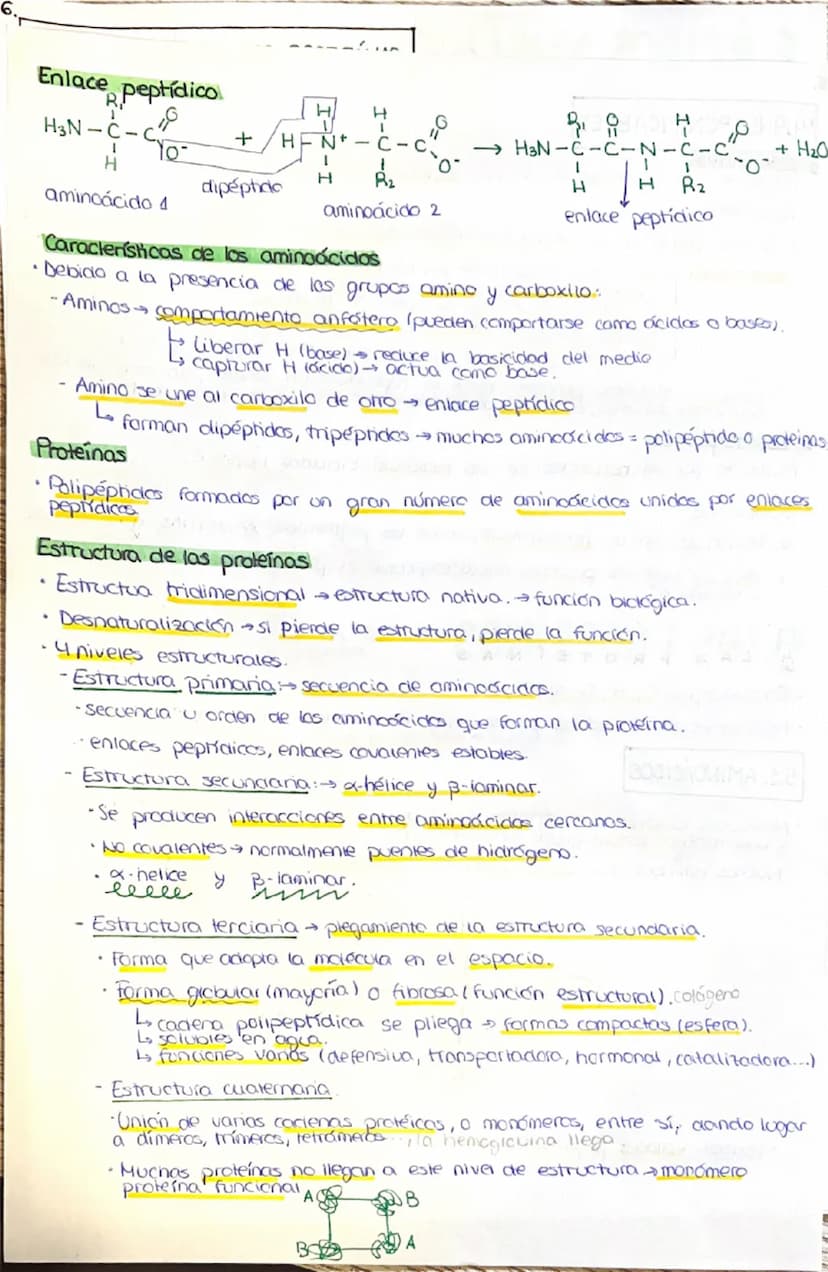 6.
Enlace peptídico
H3N-C-C O O- + H-N+-C-C O O- → H3N-C-C-N-C-C O O- + H2O
aminoácido 1 dipéptido aminoácido 2 enlace peptídico
Características de los aminoácidos
· Debido a la presencia de los grupos amino y carboxilo:
- Aminos → comportamiento anfótero (pueden comportarse como ácidos o bases).
↳ liberar H (base) → reduce la basicidad del medio
↳ capturar H (ácido) → actua como base.
- Amino se une al carboxilo de otro → enlace peptídico
↳ forman dipéptidos, tripéptidos → muchos aminoácidos = polipéptido o proteínas
Proteínas
· Polipéptidos formados por un gran número de aminoácidos unidos por enlaces
peptídicos.
Estructura de las proteínas
· Estructua tridimensional → estructura nativa. → función biológica.
· Desnaturalización → si pierde la estructura, pierde la función.
· 4 niveles estructurales.
- Estructura primaria: → secuencia de aminoácidos.
· secuencia u orden de los aminoácidos que forman la proteína.
· enlaces peptídicos, enlaces covalentes estables.
- Estructura secundaria: → α-hélice y β-laminar.
· Se producen interacciones entre aminoácidos cercanos.
· No covalentes → normalmente puentes de hidrógeno.
· α-helice y β-laminar.
- Estructura terciaria → plegamiento de la estructura secundaria.
· Forma que adopta la molécula en el espacio.
· Forma globular (mayoría) o fibrosa (función estructural). colágeno
↳ cadena polipeptídica se pliega → formas compactas (esfera).
↳ solubles en agua.
↳ funciones varias (defensiva, transportadora, hormonal, catalizadora...)
- Estructura cuaternaria.
· Unión de varias cadenas protéicas, o monómeros, entre sí, dando lugar
a dímeros, trímeros, tetrámeros..., la hemoglobina llega
· Muchas proteínas no llegan a este nivel de estructura → monómero
proteína funcional
A B
B A